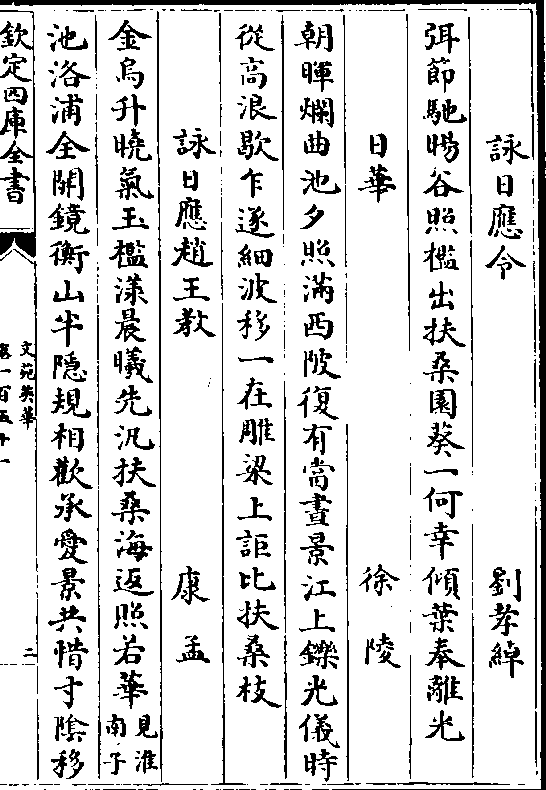 詠日應令 劉孝綽
弭節馳暘谷照檻出扶桑園葵一何幸傾葉奉離光
日華 徐陵
朝暉爛曲池夕照滿西陂復有當晝景江上鑠光儀時
從高浪歇乍逐細波移一在雕梁上詎比扶桑枝
詠日應趙王教 康孟
金烏升曉氣玉檻漾晨曦先汎扶桑海返照若華見淮南子
池洛浦全開鏡衡山半隠規相歡承愛景共惜寸陰移
欽定四庫全書
文苑英華
卷一百五十一
二